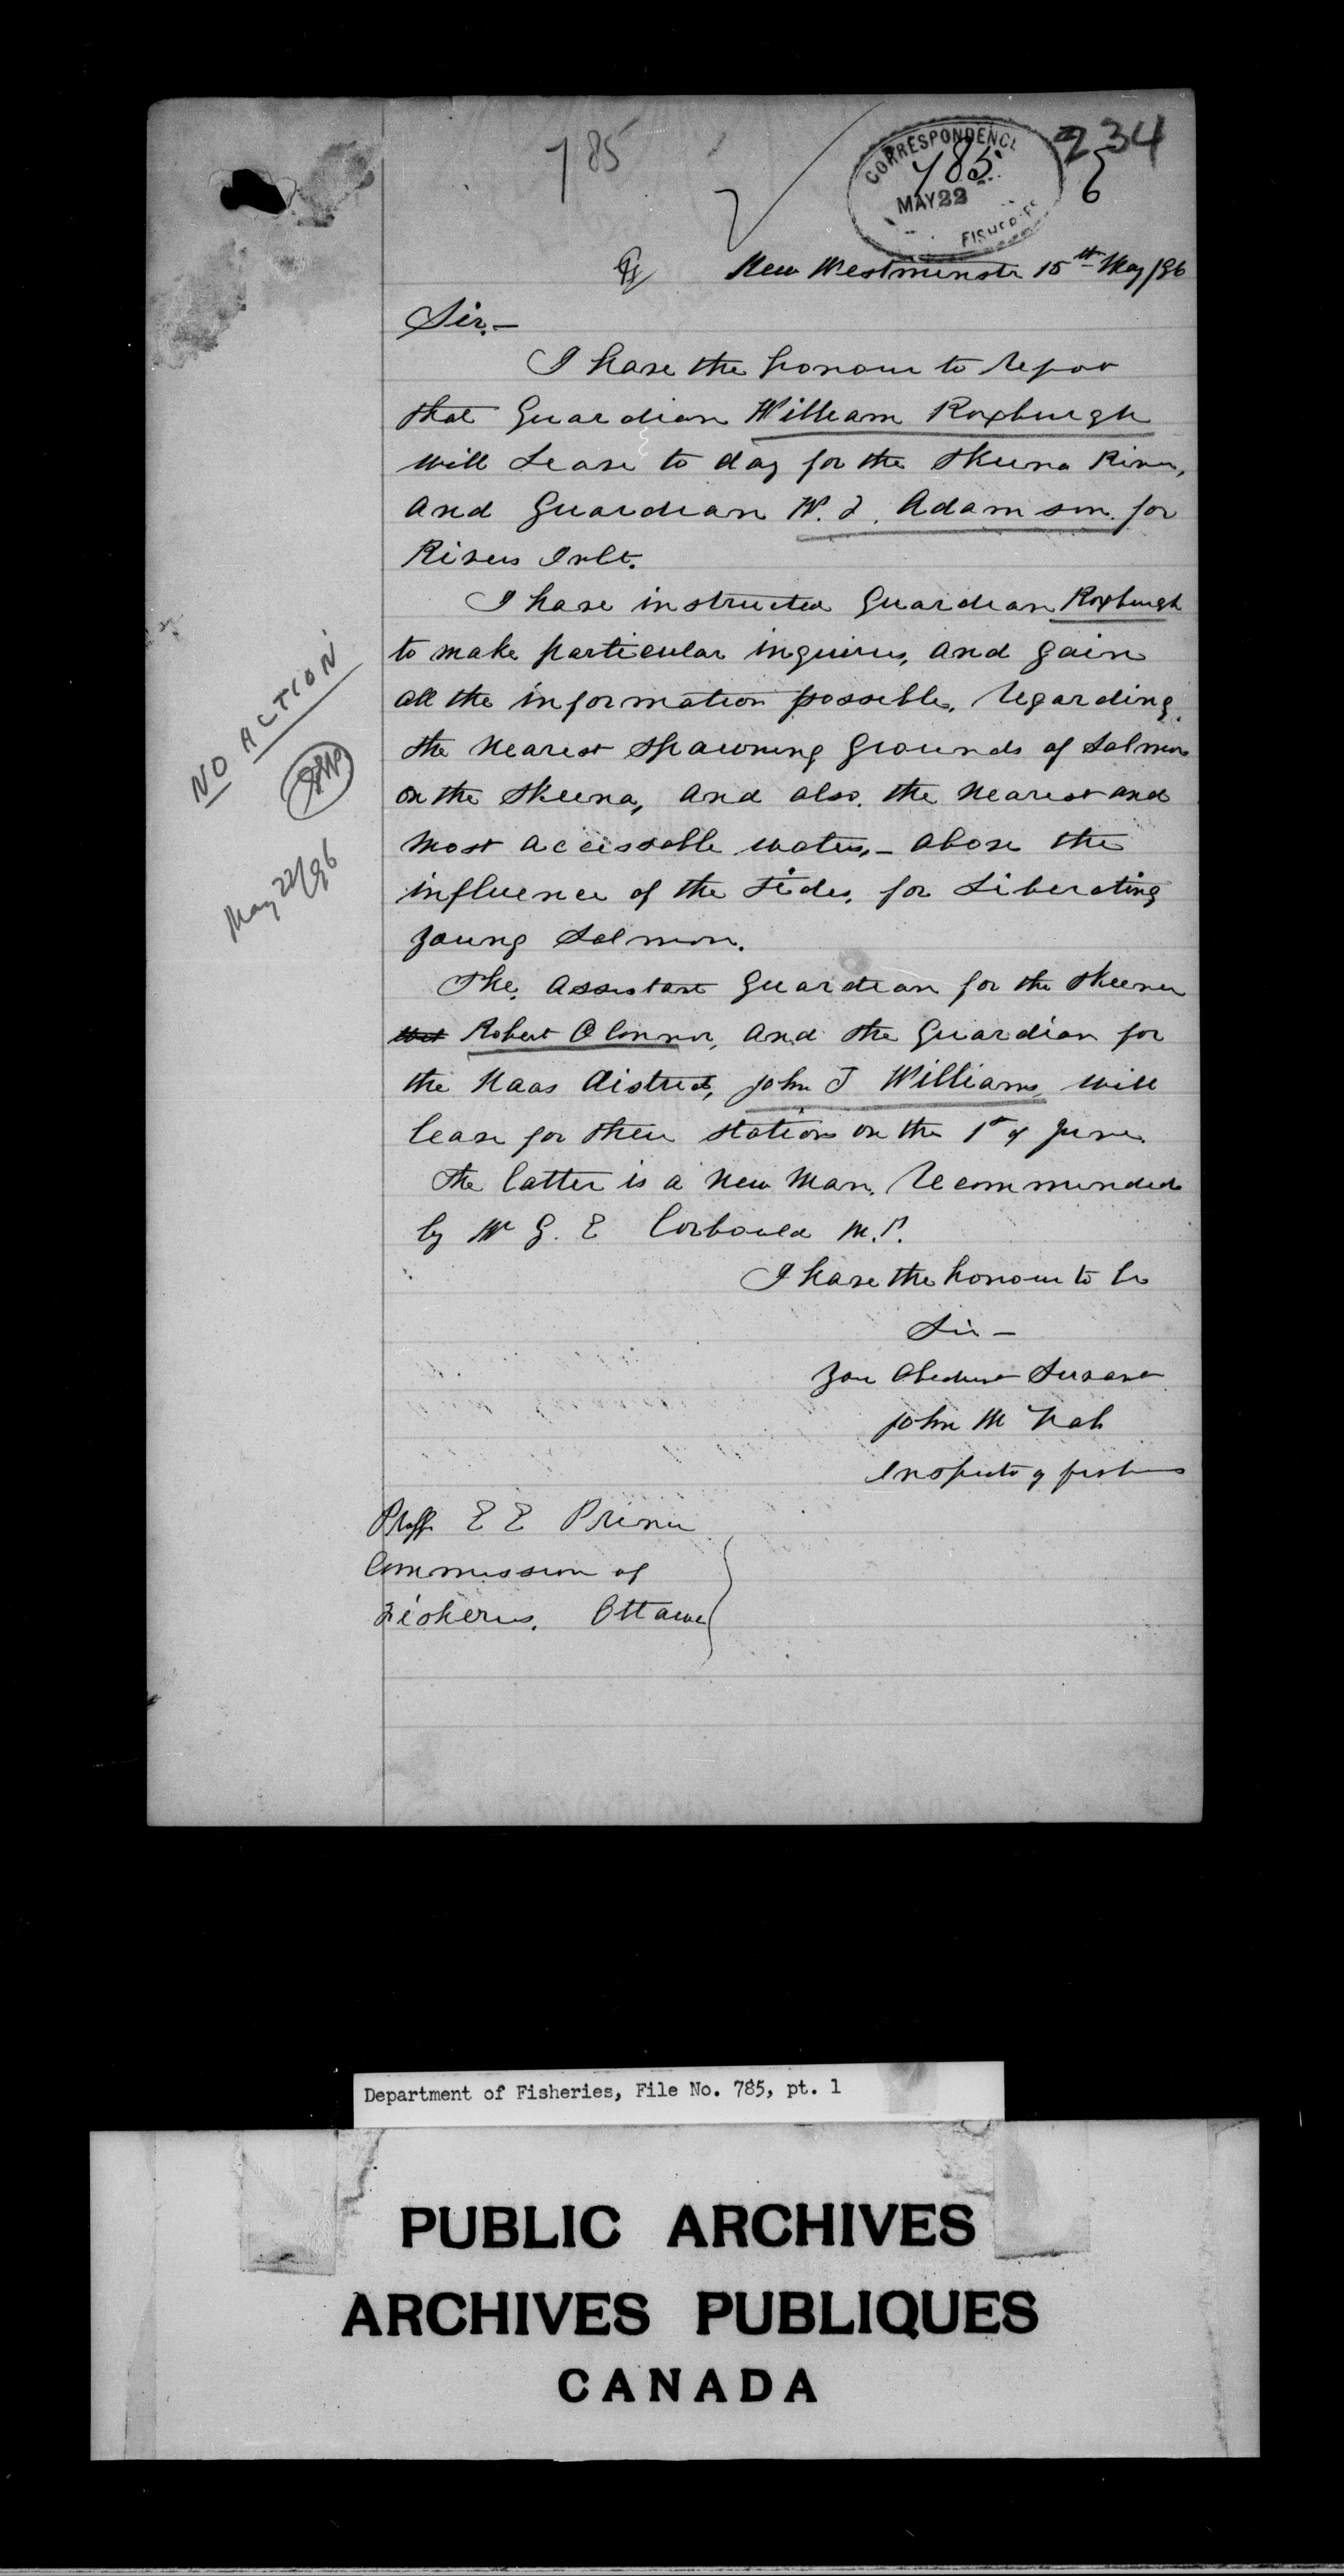 785
CORRESPONDENCE
785
MAY 22
FISHERIES
234
6
New Westminster 15th May /96
Sir,—
I have the honour to report
that Guardian William Roxburgh
will Leave to day for the Skeena River,
and Guardian W. J. Adamson for
Rivers Inlet.
I have instructed Guardian Roxburgh
to make particular inquiries, and gain
all the information possible, regarding
the nearest spawning grounds of Salmon
on the Skeena, and also, the nearest and
most accessable waters,— above the
influence of the tides, for Liberating
young Salmon.
The Assistant Guardian for the Skeena
Robert O Connor, and the Guardian for
the Naas district, John T Williams, will
leave for their stations on the 1st of June.
The latter is a new man, recommended
by Mr G. E Corbould M.P.
I have the honour to be
Sir —
Your Obedient Servant
John McNab
Inspector of fisheries
NO ACTION
May 22/96
Proff. E E Prince
Commission of
Fisheries, Ottawa
Department of Fisheries, File No. 785, pt. 1
PUBLIC ARCHIVES
ARCHIVES PUBLIQUES
CANADA